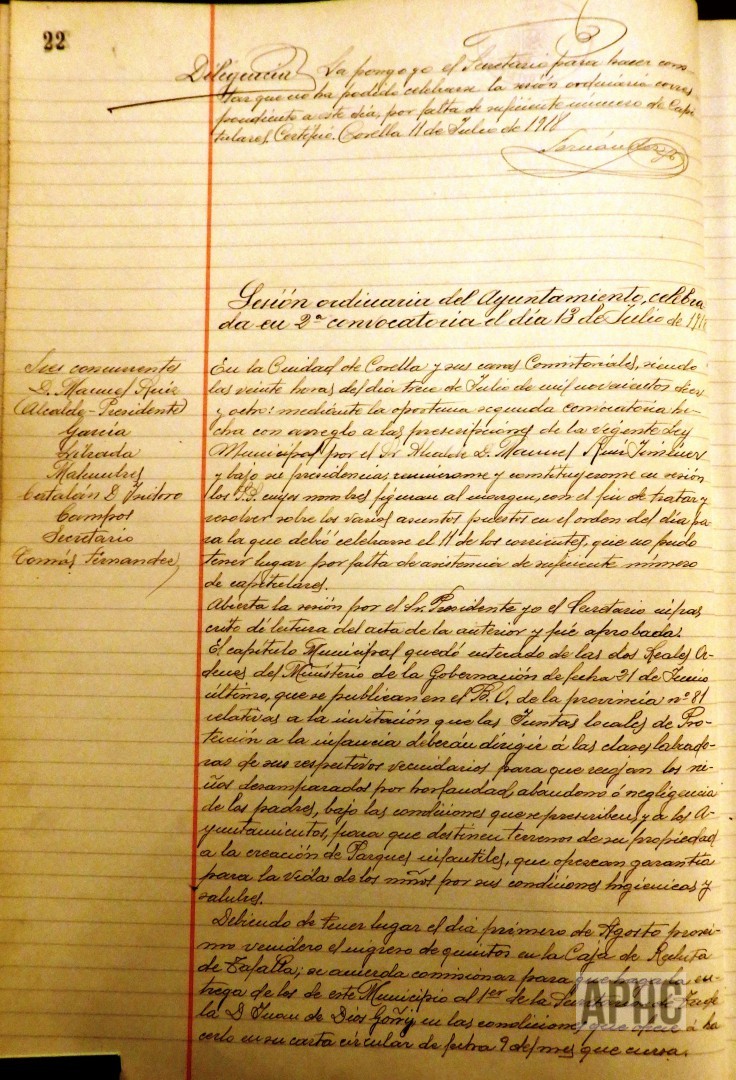 22
Diligencia La pongo yo el Secretario para hacer cons-
tar que no ha podido celebrarse la sesión ordinaria corres
pondiente a este día, por falta de suficiente número de Capi
tulares. Certifico. Corella 11 de Julio de 1918
Fernández
Sesión ordinaria del Ayuntamiento, celebra
da en 2ª convocatoria el día 13 de Julio de 1918
Sres concurrentes
D. Manuel Ruiz
(Alcalde-Presidente)
García
Librada
Malumbres
Catalán D Isidoro
Campos
Secretario
Tomás Fernandez
En la Ciudad de Corella y sus casas Consistoriales, siendo
las veinte horas del dia trece de Julio de mil novecientos diez
y ocho: mediante la oportuna segunda convocatoria he-
cha con arreglo a las prescripciones de la vigente Ley
Municipal por el Sr Alcalde D. Manuel Ruiz Jiménez
y bajo su presidencia, reunieronse y constituyeronse en sesión
los SS. cuyos nombres figuran al margen, con el fin de tratar y
resolver sobre los varios asuntos puestos en el orden del día pa
ra la que debió celebrarse el 11 de los corrientes, que no pudo
tener lugar por falta de asistencia de suficiente número
de capitulares.
Abierta la sesión por el Sr. Presidente yo el Secretario infras
crito dí lectura del acta de la anterior y fué aprobada.
El capítulo Municipal quedó enterado de las dos Reales Or-
denes del Ministerio de la Gobernación de fecha 21 de Junio
último, que se publican en el B.O. de la provincia nº 81
relativas a la invitación que las Juntas locales de Pro-
tección a la infancia deberán dirigir á las clases labrado-
ras de sus respectivos vecindarios para que recojan los ni-
ños desamparados por horfandad, abandono ó negligencia
de los padres, bajo las condiciones que se prescriben, y a los A-
yuntamientos, para que destinen terrenos de su propiedad
a la creación de Parques infantiles, que ofrezcan garantía
para la vida de los niños por sus condiciones higienicas y
salubres.
Debiendo de tener lugar el dia primero de Agosto proxi-
mo venidero el ingreso de quintos en la Caja de Recluta
de Tafalla; se acuerda comisionar para que haga la en-
trega de los de este Municipio al 1er de la
la D. Juan de Dios Goñi en las condiciones que ofrece á ha
cerlo en su carta circular de fecha 9 del mes que cursa.
APHC